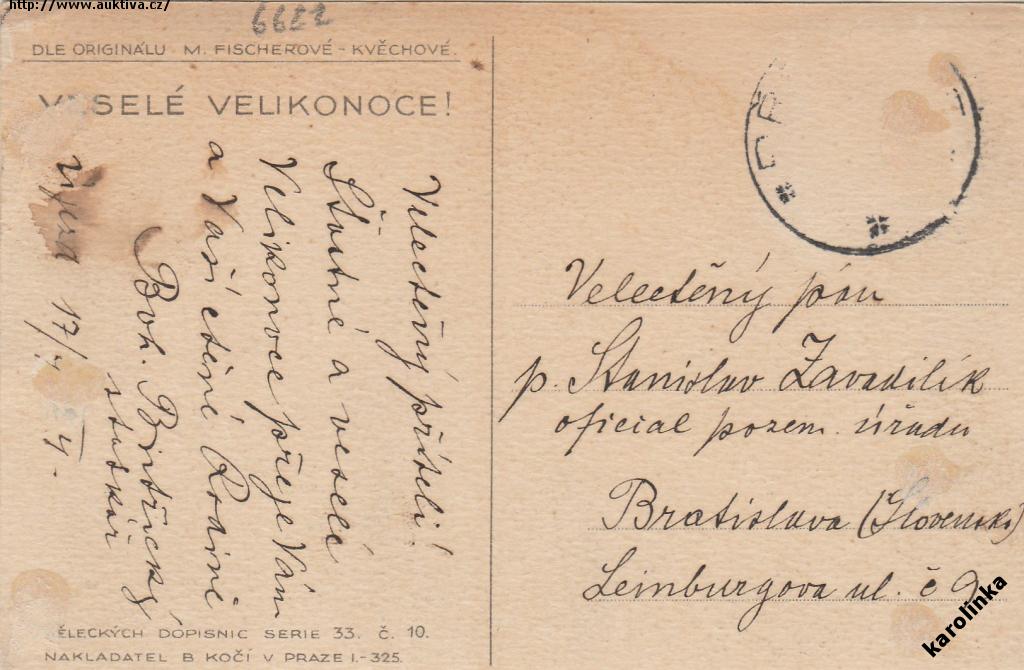 http://www.auktiva.cz/
6622
DLE ORIGINÁLU M. FISCHEROVÉ - KVĚCHOVÉ.
VESELÉ VELIKONOCE!
Velectěný příteli!
Šťastné a veselé
Velikonoce přeje Vám
a Vaší ctěné Rodině
Boh.
17/4
Velectěný pán
p. Stanislav Zavadilík
oficial pozem. úřadu
Bratislava (Slovensko)
Leimburgova ul. č 9
ĚLECKÝCH DOPISNIC SERIE 33. Č. 10.
NAKLADATEL B KOČÍ V PRAZE I.-325.
karolinka